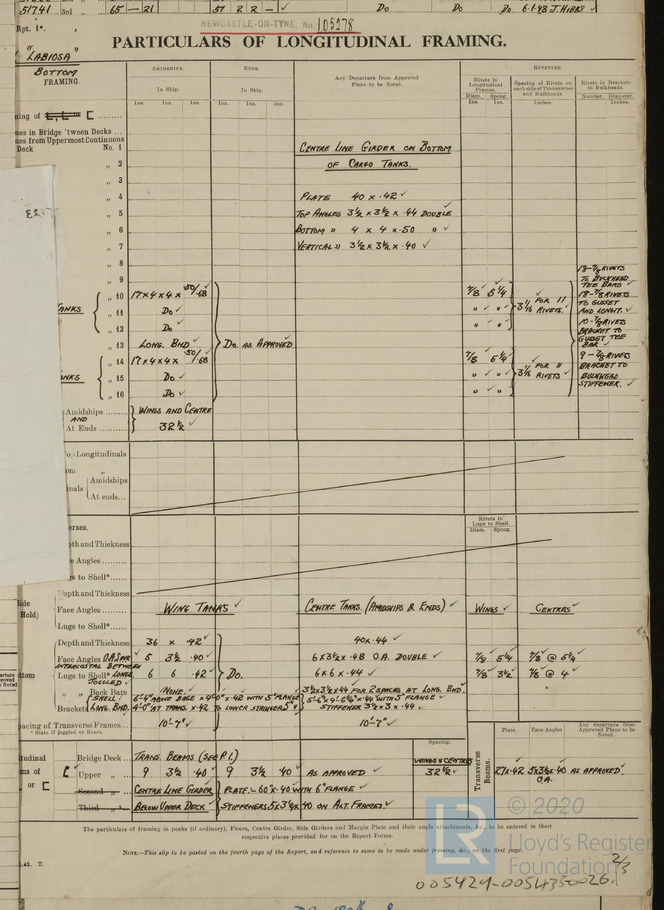 51741 3rd 65 - 21 57 R R - Do Do Do 6.1.48
Rpt. 1*.
NEWCASTLE-ON-TYNE, No. 105278
PARTICULARS OF LONGITUDINAL FRAMING.
"LABIOSA"
BOTTOM
FRAMING.
AMIDSHIPS. ENDS. Any Departure from Approved Plans to be Noted. RIVETING.
In Ship. In Ship. Rivets in Longitudinal Frames. Spacing of Rivets on each side of Transverses and Bulkheads. Rivets in Brackets to Bulkheads.
Ins. Ins. Ins. Ins. Ins. Ins. Diam. Ins. Spcng. Ins. Inches. Number. Diameter. Inches.
nes in Bridge 'tween Decks ...
nes from Uppermost Continuous
Deck No. 1
CENTRE LINE GIRDER ON BOTTOM
„ 2 OF CARGO TANKS.
„ 3
„ 4 PLATE 40 x .42
„ 5 TOP ANGLES 3½ x 3½ x .44 DOUBLE
„ 6 BOTTOM " 4 x 4 x .50 "
„ 7 VERTICAL " 3½ x 3½ x .40
„ 8
„ 9
18-⅞ RIVETS
TO BULKHEAD
TEE BARS
„ 10 17x4x4x .50/.68 ⅞ 5¼
18-⅞ RIVETS
TO GUSSET
AND LONGITL.
TANKS „ 11 Do " " 3⅛ FOR 11 RIVETS.
„ 12 Do " "
10-⅞ RIVETS
BRACKET TO
GUSSET TEE
BAR
„ 13 LONG. BHD Do. AS APPROVED
„ 14 17x4x4x .50/.68 ⅞ 5¼
9-⅞ RIVETS
BRACKET TO
BULKHEAD
STIFFENER.
ANKS „ 15 Do " " 3⅛ FOR 11 RIVETS
„ 16 Do " "
Amidships WINGS AND CENTRE
AND
At Ends 32½
op Longitudinals
om „
inals Amidships
At ends...
Rivets in Lugs to Shell.
Diam. Spcng.
erses.
pth and Thickness
e Angles
s to Shell*
Depth and Thickness
ide
Hold) Face Angles WING TANKS CENTRE TANKS. (AMIDSHIPS & ENDS) WINGS CENTRES
Lugs to Shell*
Depth and Thickness 36 x .42 40 x .44
Face Angles 5 3½ .40 Do. 6x3½x.48 O.A. DOUBLE ⅞ 5¼ ⅞ @ 5¼
INTERCOSTAL BETWEEN
ttom Lugs to Shell* LONGS. 6 6 .42 6x6x.44 ⅞ 3½ ⅞ @ 4
JOGGLED
„ „ Back Bars NONE 3½x3½x.44 FOR 2 SPACES AT LONG. BHD.
Brackets SHELL 6'-4" ABOVE BASE x .42 WITH 5" FLANGE
LONG. BHD. 4'-0" AT TRANS. x .42 TO LOWER STRINGER 5" STIFFENER 3½x3x.44
pacing of Transverse Frames 10'-7" 10'-7"
* State if joggled or liners.
Spacing. Plate. Face Angles. Any departure from Approved Plans to be Noted.
tudinal Bridge Deck TRANS. BEAMS (SEE P1.) WINGS & CENTRES
ms of Upper „ 9 3½ .40 9 3½ .40 AS APPROVED 32½ Transverse Beams. 27x.42 5x3½x.40 O.A. AS APPROVED
or Second „ CENTRE LINE GIRDER PLATE - 60 x .40 WITH 6" FLANGE
Third „ BELOW UPPER DECK STIFFENERS 5x3½x.40 ON ALT. FRAMES
The particulars of framing in peaks (if ordinary), Floors, Centre Girder, Side Girders and Margin Plate and their angle attachments, &c., to be entered in their
respective places provided for on the Report Forms.
NOTE.—This slip to be pasted on the fourth page of the Report, and reference to same to be made under framing, &c., on the first page.
LR © 2020
Lloyd's Register
Foundation
2/3
T.
005429-005435-0026.